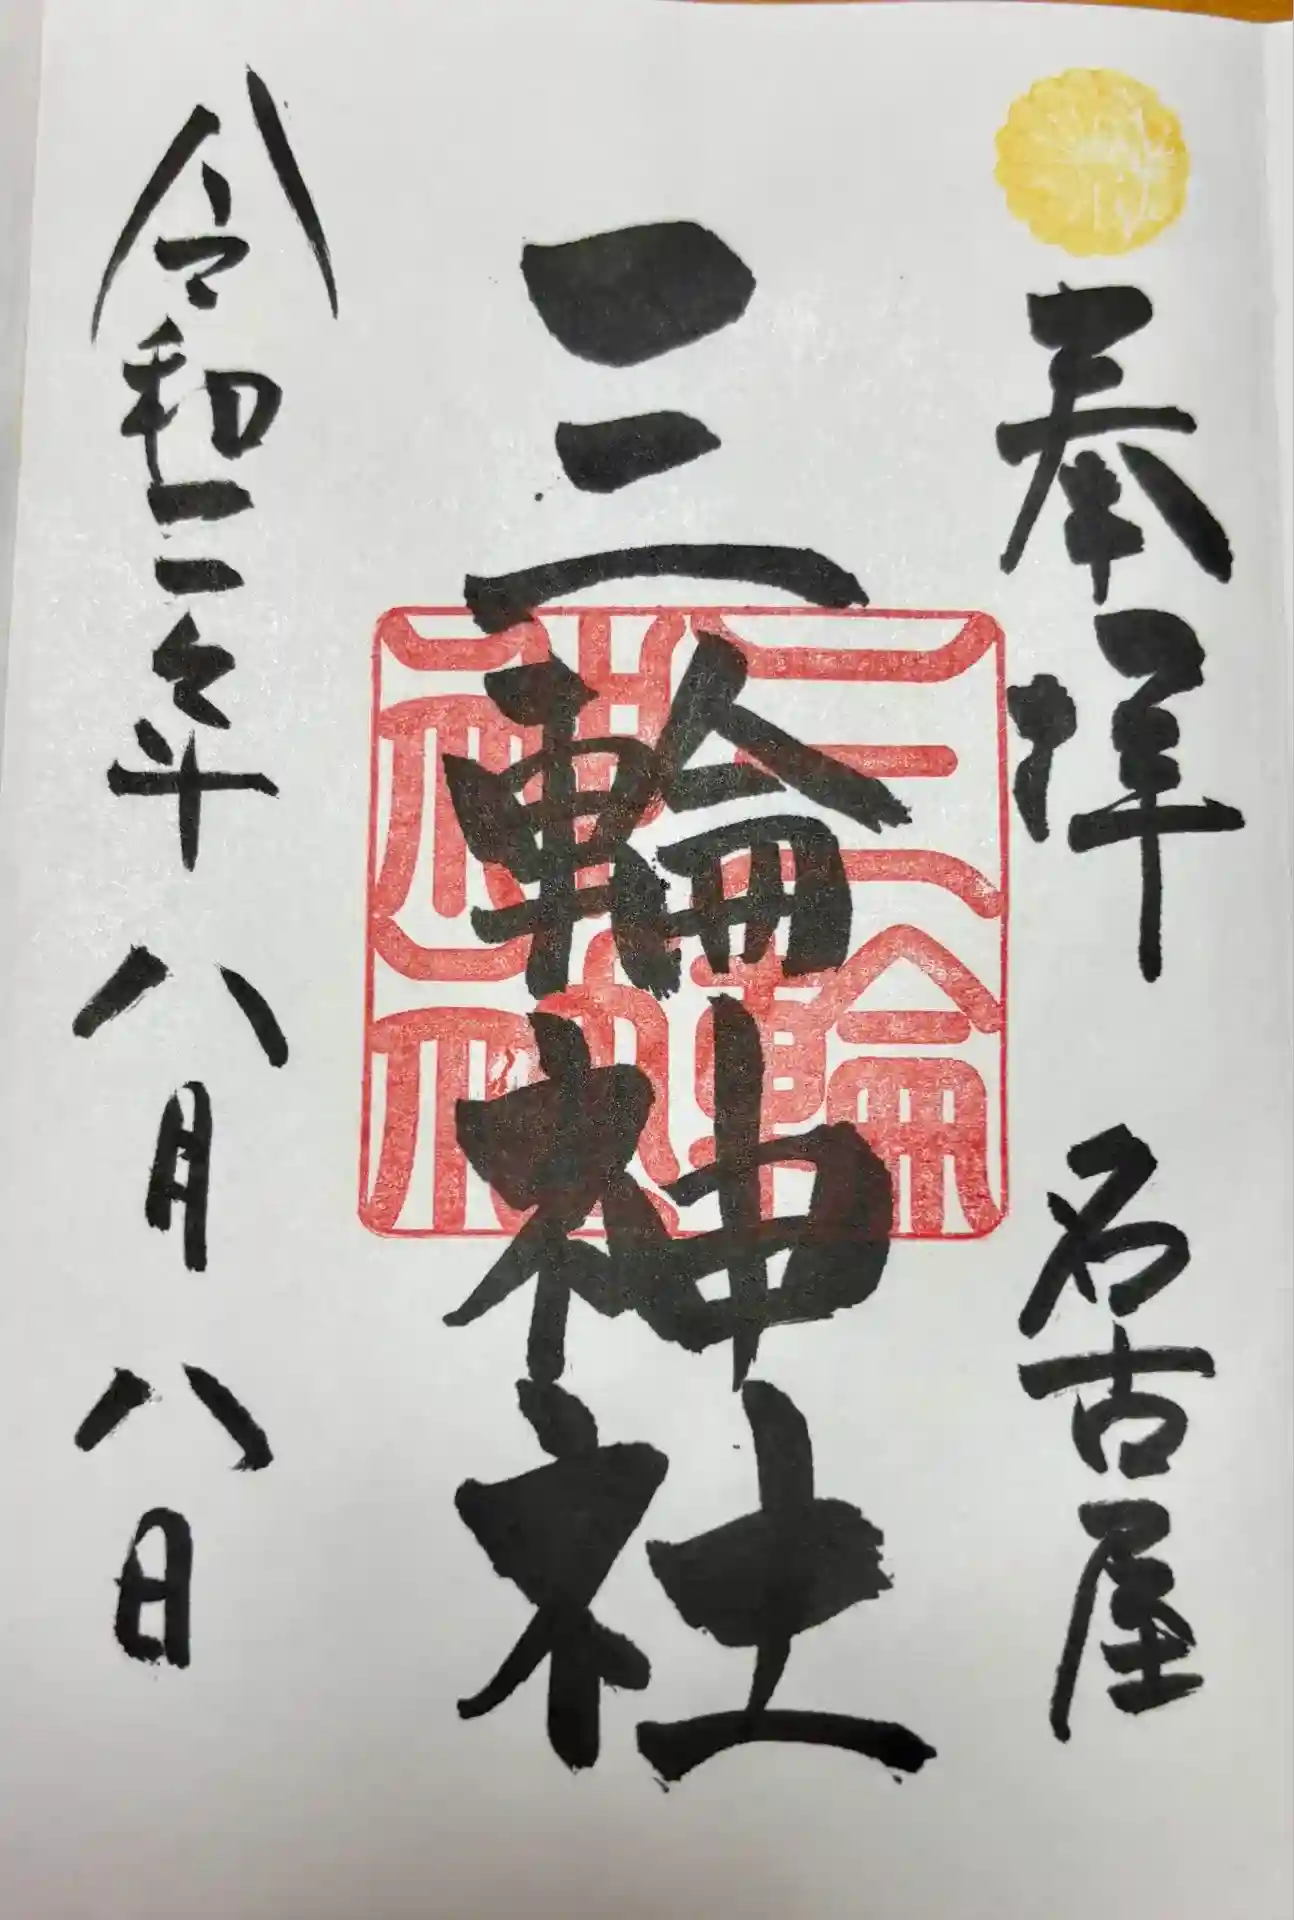 奉拝 名古屋
三輪神社
令和二年八月八日
三輪
神社